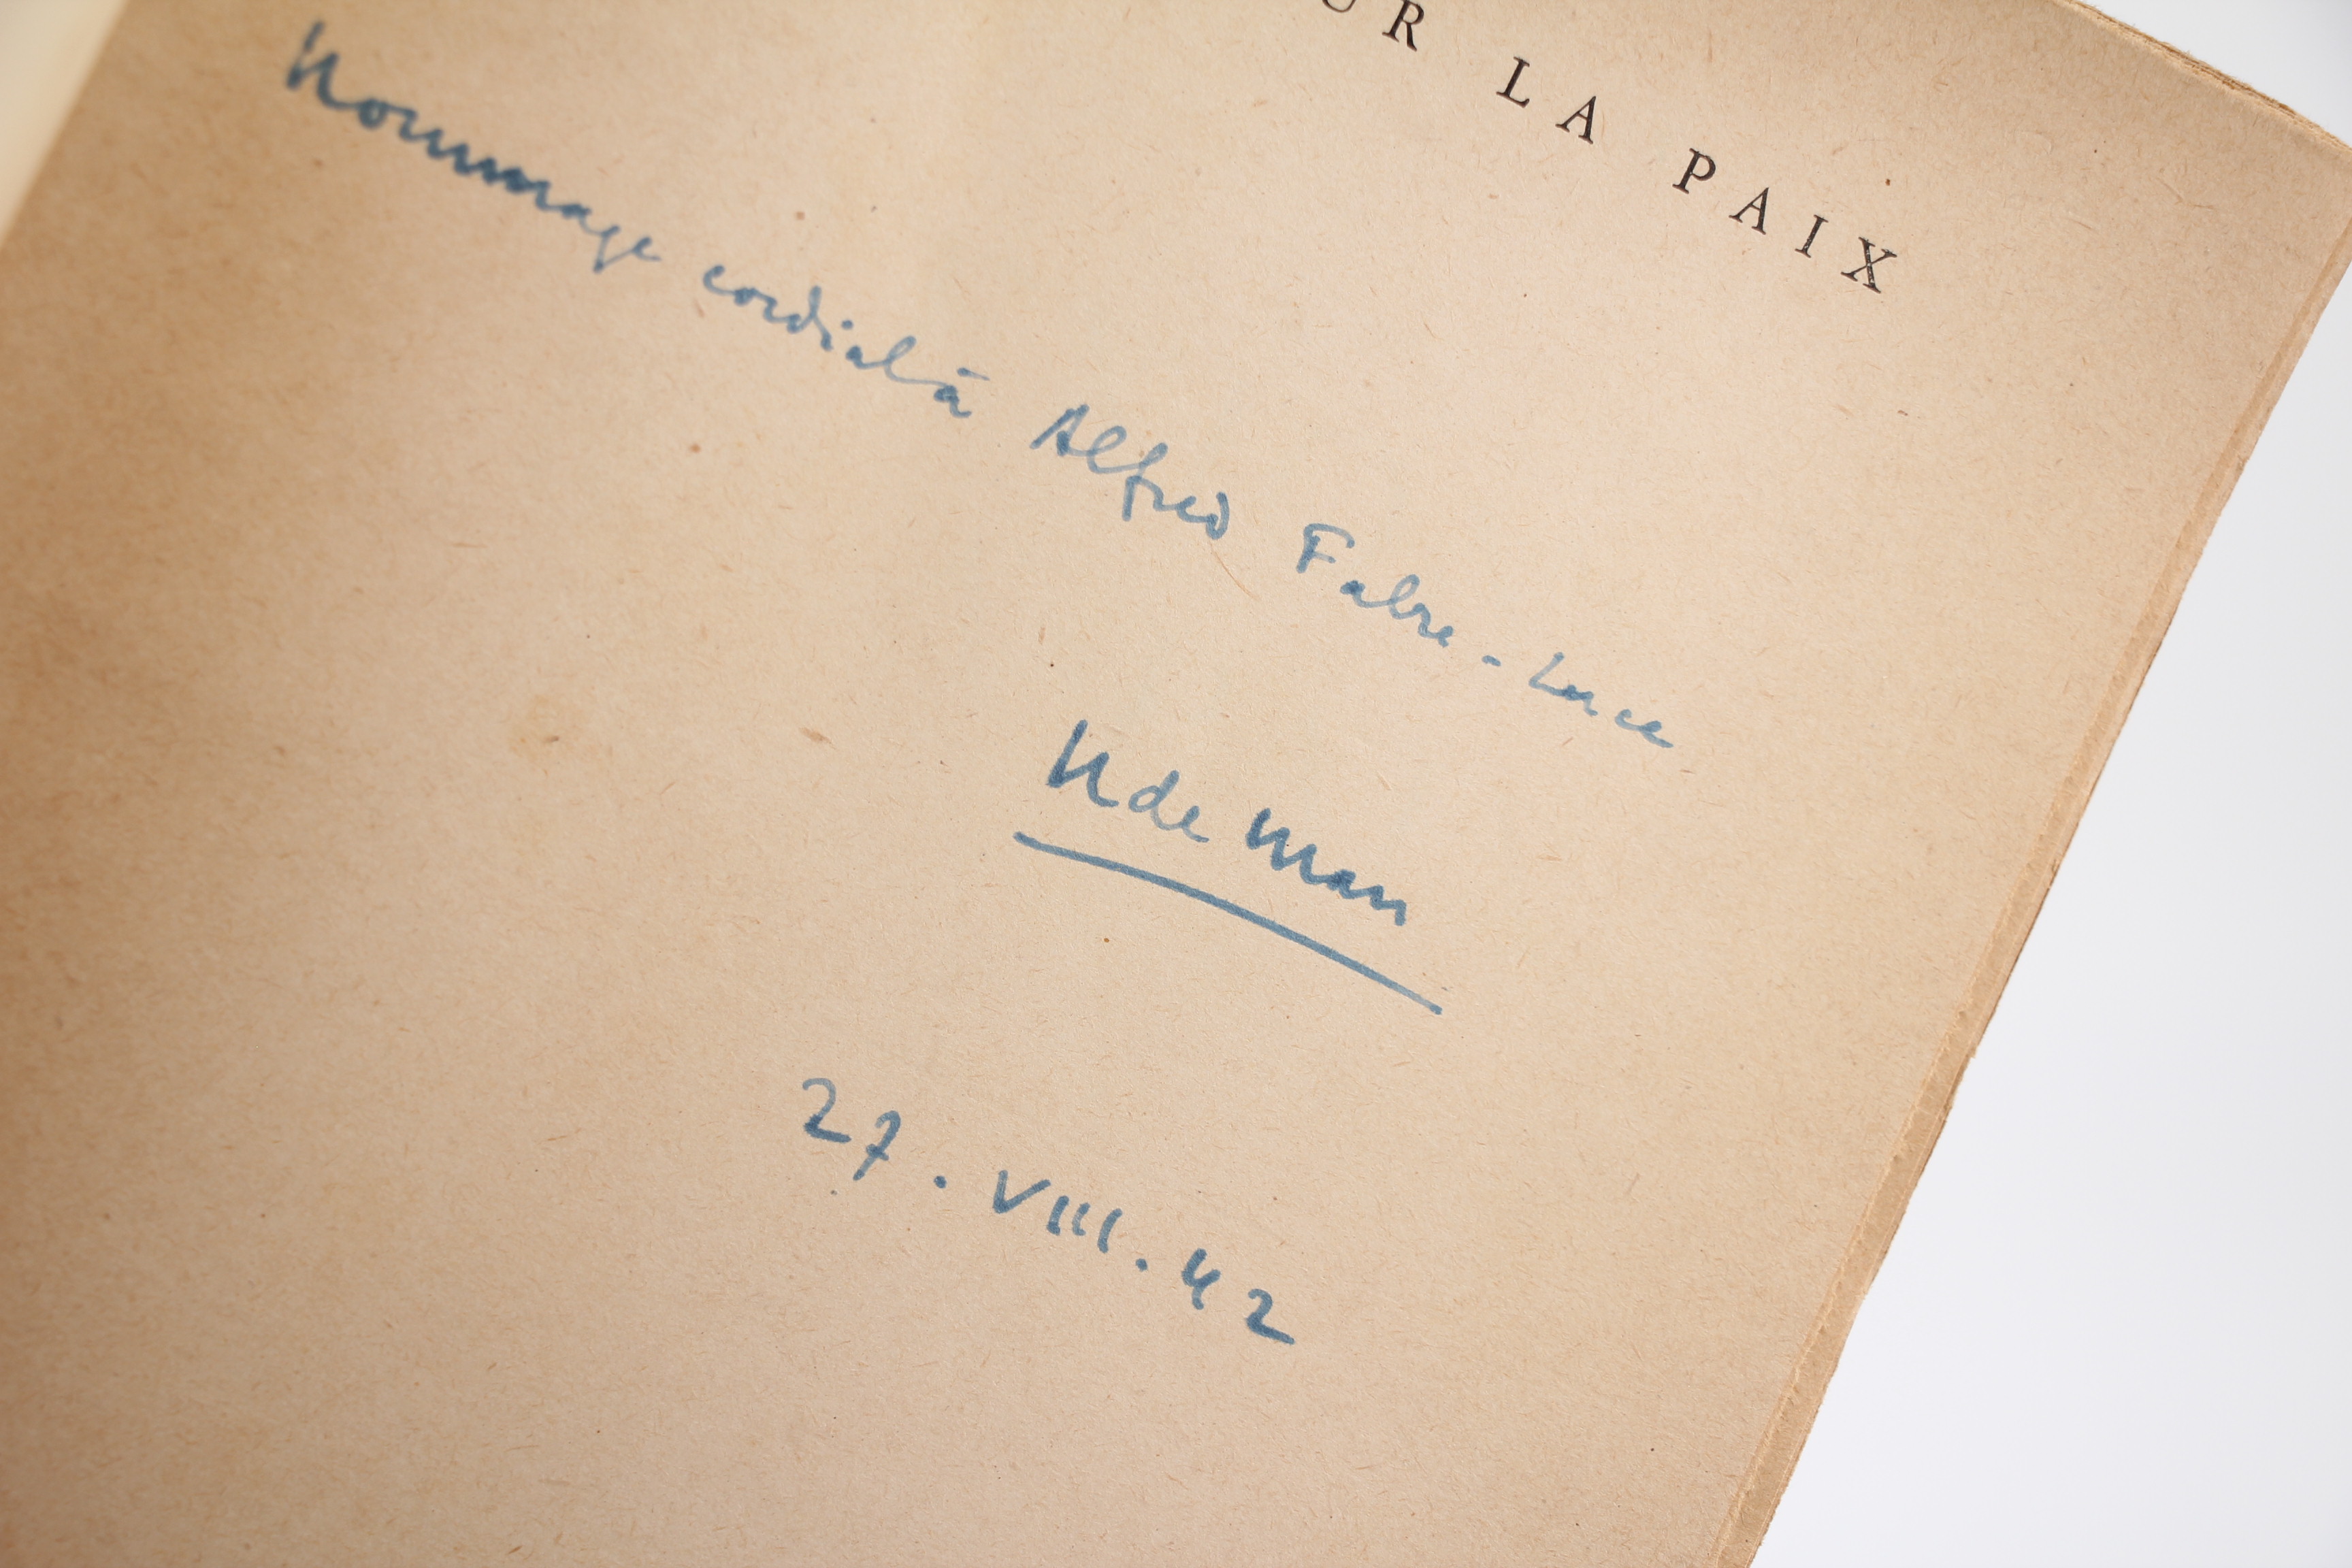 UR LA PAIX
Hommage cordial à Alfred Fabre-Luce
H de Man
27. VIII. 42